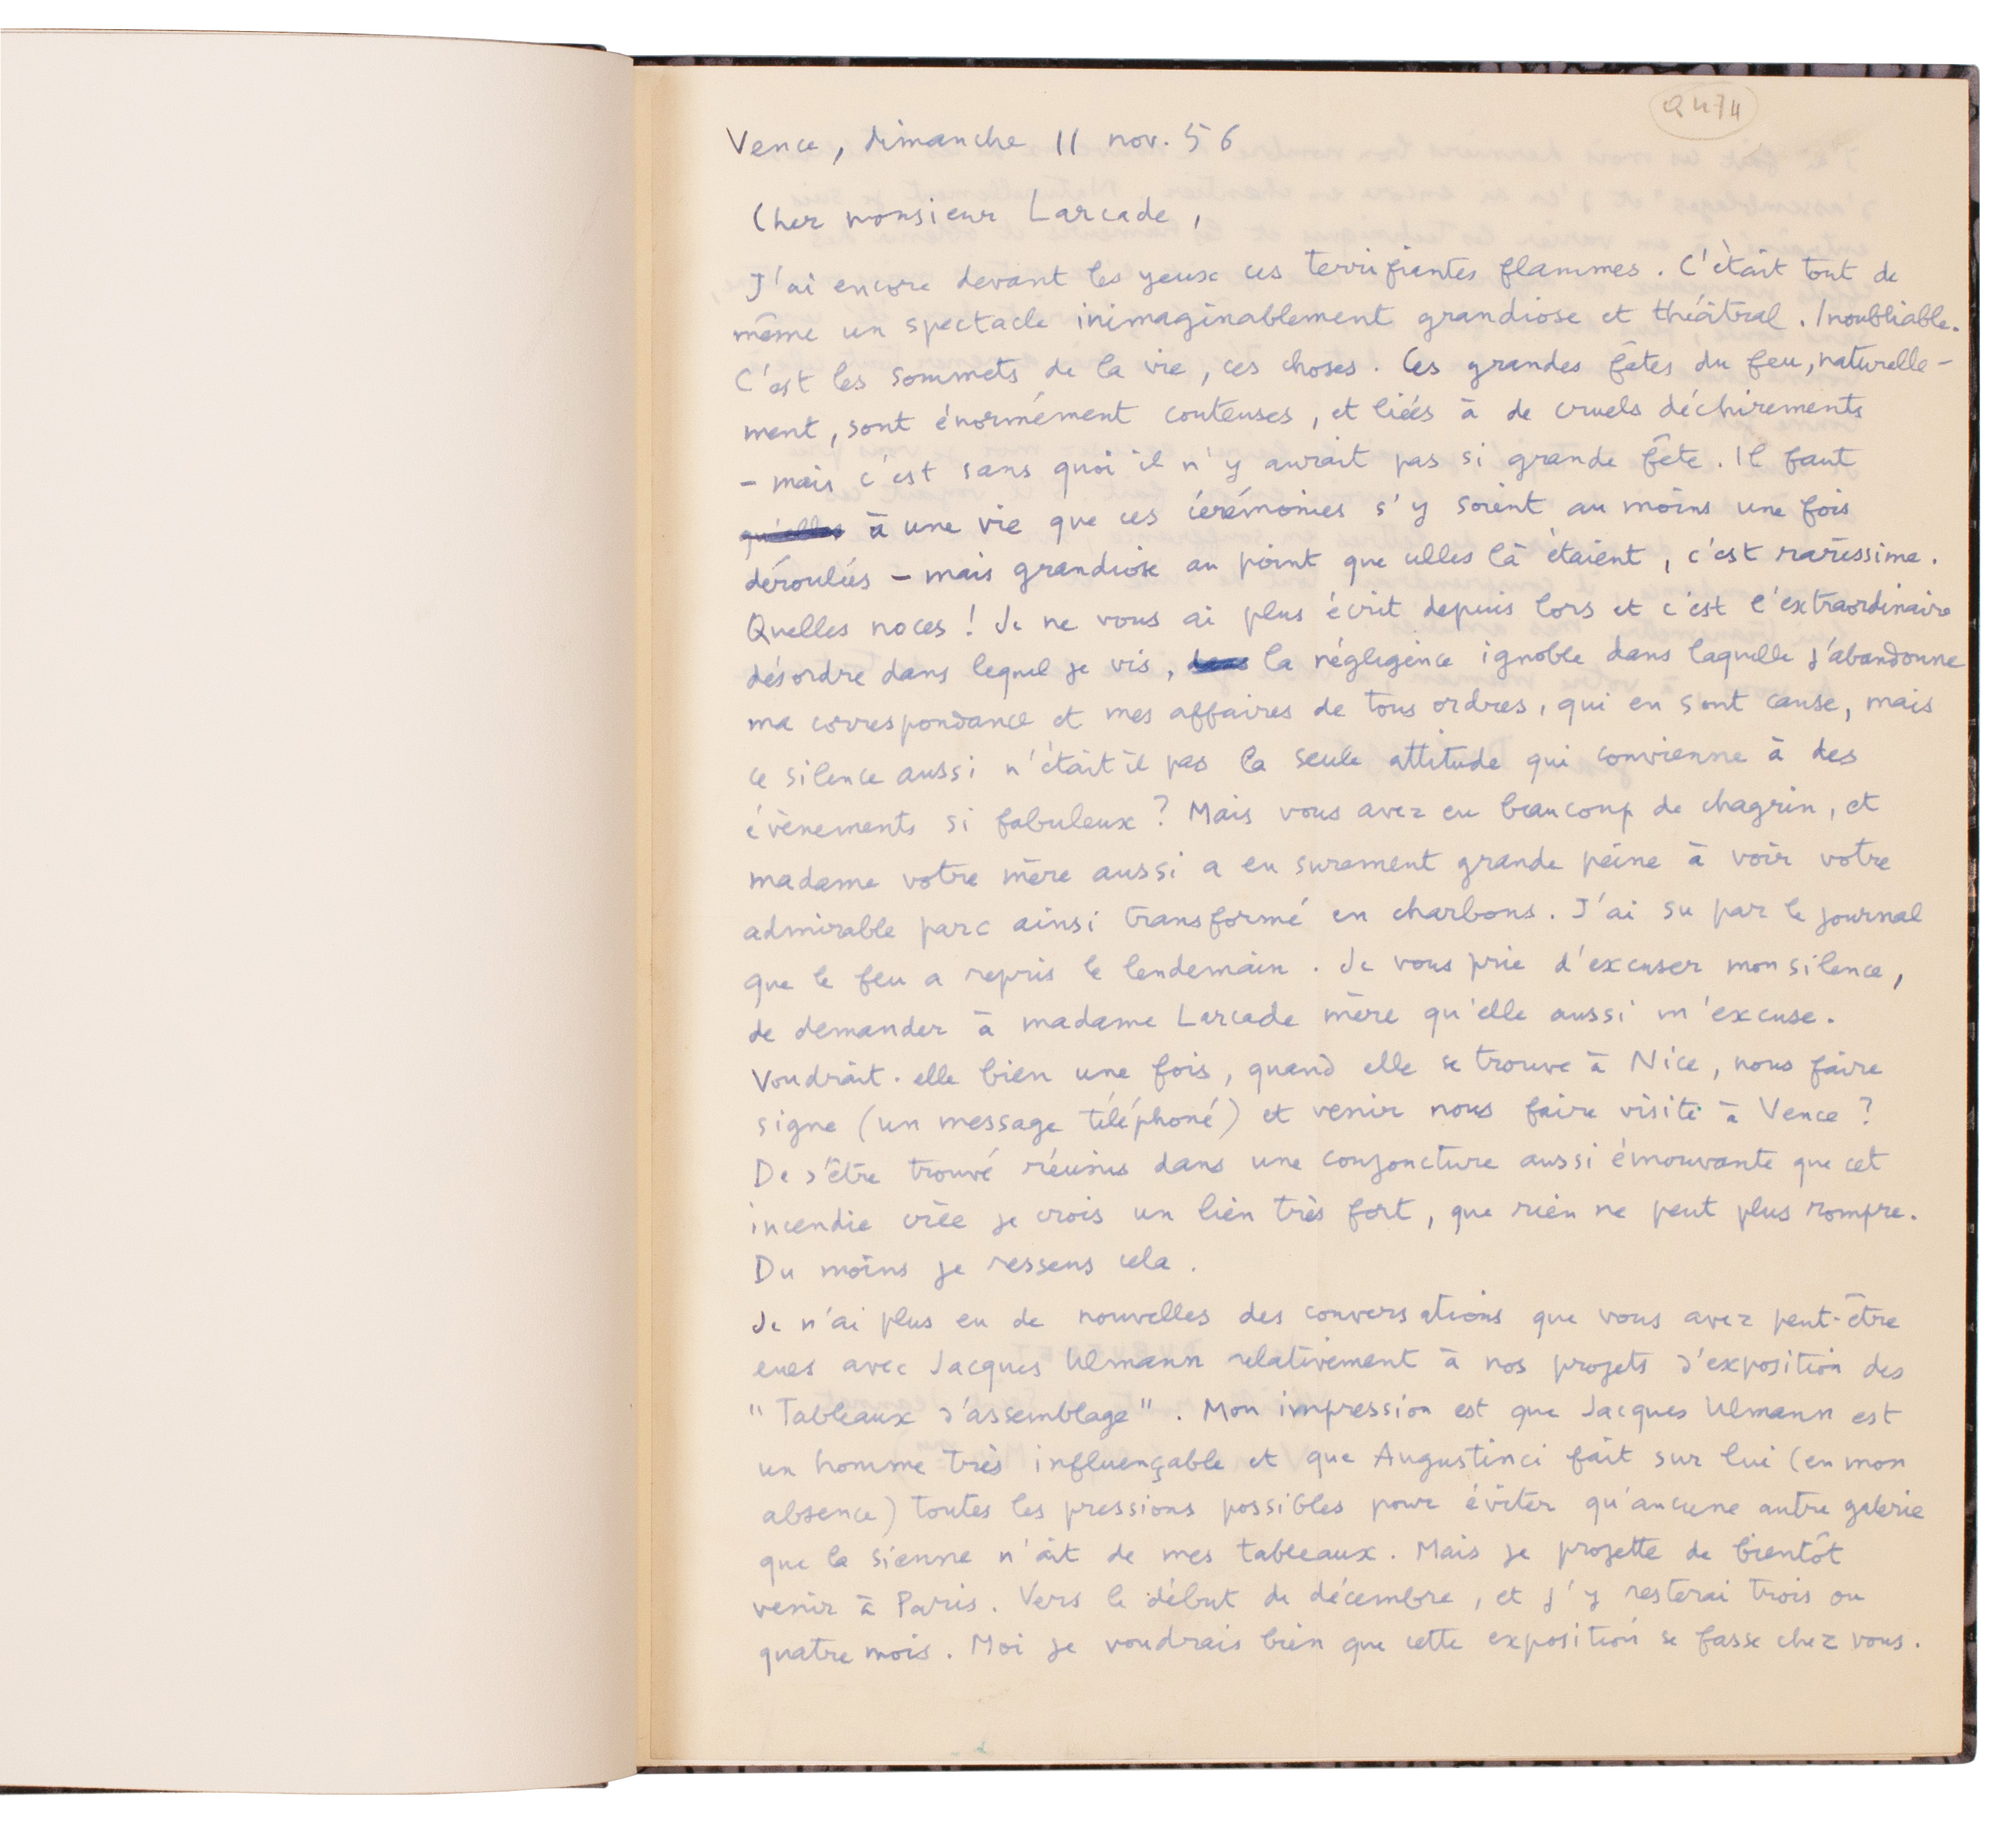 2474
Vence, dimanche 11 nov. 56
Cher monsieur Larcade,
J'ai encore devant les yeux ces terrifiantes flammes. C'était tout de
même un spectacle inimaginablement grandiose et théâtral. Inoubliable.
C'est les sommets de la vie, ces choses. Ces grandes fêtes du feu, naturelle-
ment, sont énormément couteuses, et liées à de cruels déchirements
- mais c'est sans quoi il n'y aurait pas si grande fête. Il faut
qu'elles à une vie que ces cérémonies s'y soient au moins une fois
déroulées - mais grandiose au point que celles là étaient, c'est rarissime.
Quelles noces ! Je ne vous ai plus écrit depuis lors et c'est l'extraordinaire
désordre dans lequel je vis, la négligence ignoble dans laquelle j'abandonne
ma correspondance et mes affaires de tous ordres, qui en sont cause, mais
ce silence aussi n'était il pas la seule attitude qui convienne à des
évènements si fabuleux ? Mais vous avez eu beaucoup de chagrin, et
madame votre mère aussi a eu surement grande peine à voir votre
admirable parc ainsi transformé en charbons. J'ai su par le journal
que le feu a repris le lendemain. Je vous prie d'excuser mon silence,
de demander à madame Larcade mère qu'elle aussi m'excuse.
Voudrait-elle bien une fois, quand elle se trouve à Nice, nous faire
signe (un message téléphoné) et venir nous faire visite à Vence ?
De s'être trouvé réunis dans une conjoncture aussi émouvante que cet
incendie crée je crois un lien très fort, que rien ne peut plus rompre.
Du moins je ressens cela.
Je n'ai plus eu de nouvelles des conversations que vous avez peut-être
eues avec Jacques Ulmann relativement à nos projets d'exposition des
"Tableaux d'assemblage". Mon impression est que Jacques Ulmann est
un homme très influençable et que Augustinci fait sur lui (en mon
absence) toutes les pressions possibles pour éviter qu'aucune autre galerie
que la sienne n'ait de mes tableaux. Mais je projette de bientôt
venir à Paris. Vers le début de décembre, et j'y resterai trois ou
quatre mois. Moi je voudrais bien que cette exposition se fasse chez vous.